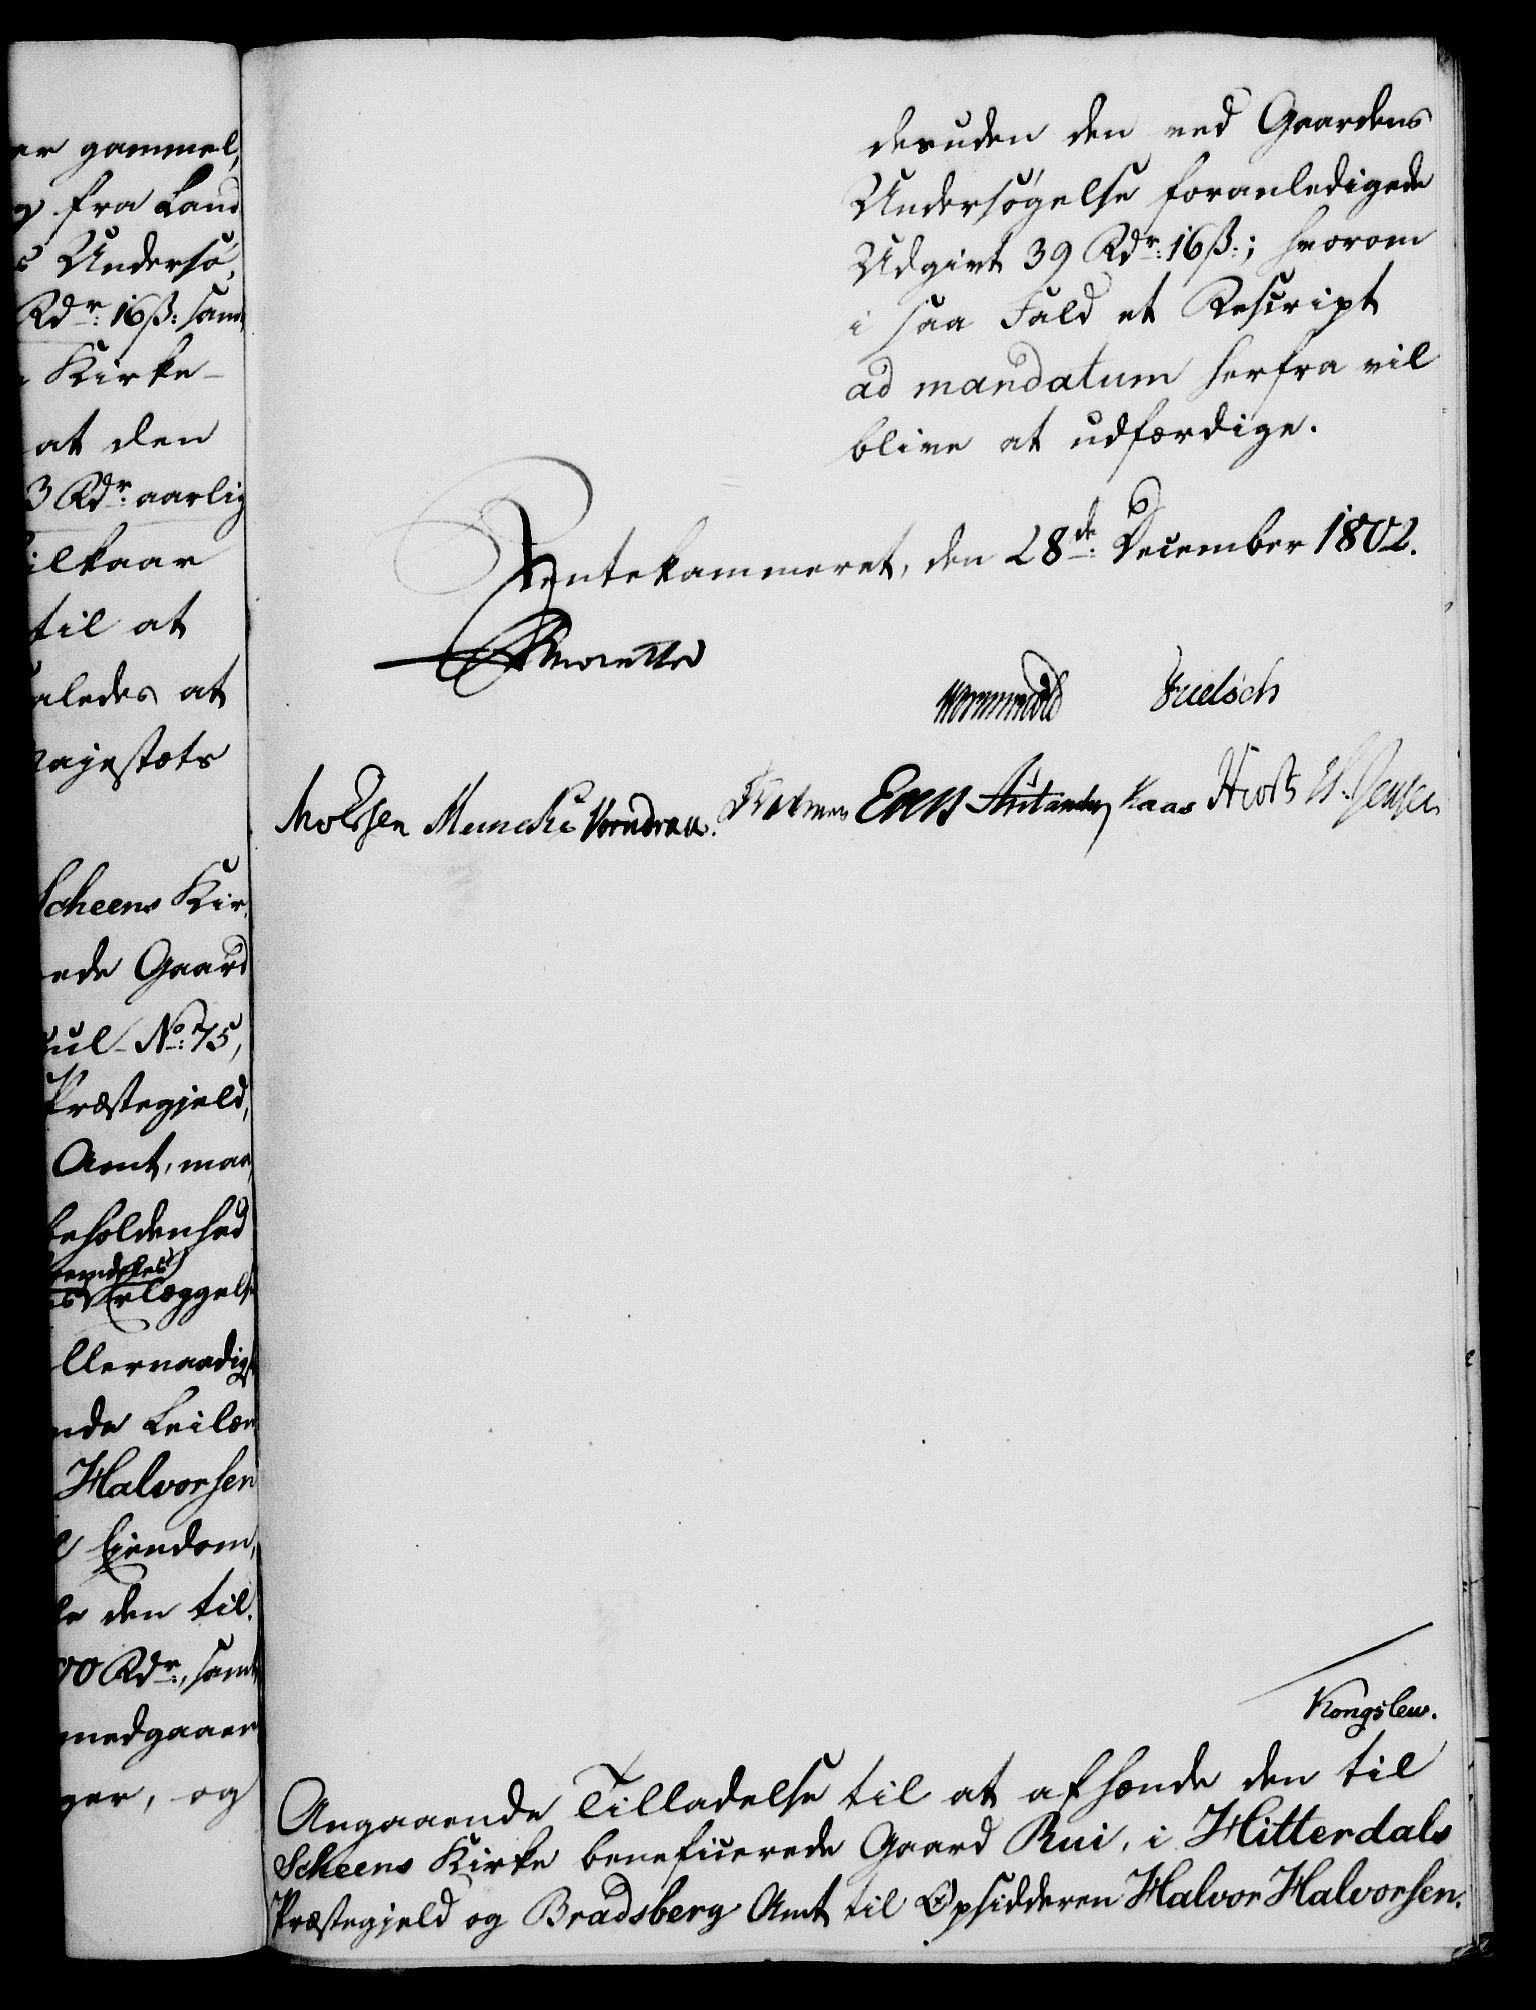 er gammel,
fra Land
Undersø,
Rdr: 16ß: samt
Kirke-
at den
3 Rdr: aarlig
ilkaar
til at
aledes at
ajestæts
Scheens Kir,
ede Gaard
ul- No: 75,
Præstegjeld,
Amt, maa,
eholdenhed
Erlæggelse
llernaadigst
nde Leilæn
Halvorsen
Eiendom,
den til,
00 Rdr:, samt
medgaaer
ger, og
desuden den ved Gaardens
Undersøgelse foranledigede
Udgivt 39 Rdr: 16ß:; hvorom
i saa Fald et Rescript
ad mandatum herfra vil
blive at udfærdige.
Rentekammeret, den 28de: December 1802.
Wormskiold
Moldsen Munch Vorndran. Kaas Hiort Jensen
Kongslew.
Angaaende Tilladelse til at afhænde den til
Scheens Kirke beneficerede Gaard Rui, i Hitterdals
Præstegjeld og Bradsberg Amt til Opsidderen Halvor Halvorsen.